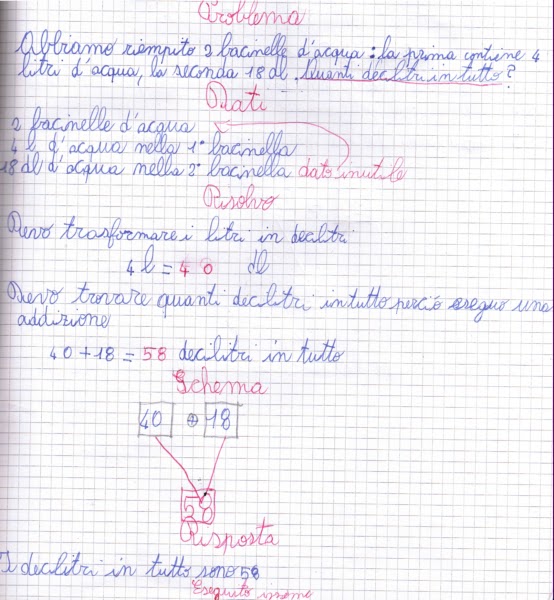 Problema
Abbiamo riempito 2 bacinelle d'acqua: la prima contiene 4
litri d'acqua, la seconda 18 dl. Quanti decilitri in tutto?
Dati
2 bacinelle d'acqua
4 l d'acqua nella 1ª bacinella
18 dl d'acqua nella 2ª bacinella dato inutile
Risolvo
Devo trasformare i litri in decilitri
4 l = 40 dl
Devo trovare quanti decilitri in tutto perciò eseguo una
addizione
40+18 = 58 decilitri in tutto
Schema
40 + 18
58
Risposta
I decilitri in tutto sono 58
Eseguito insieme